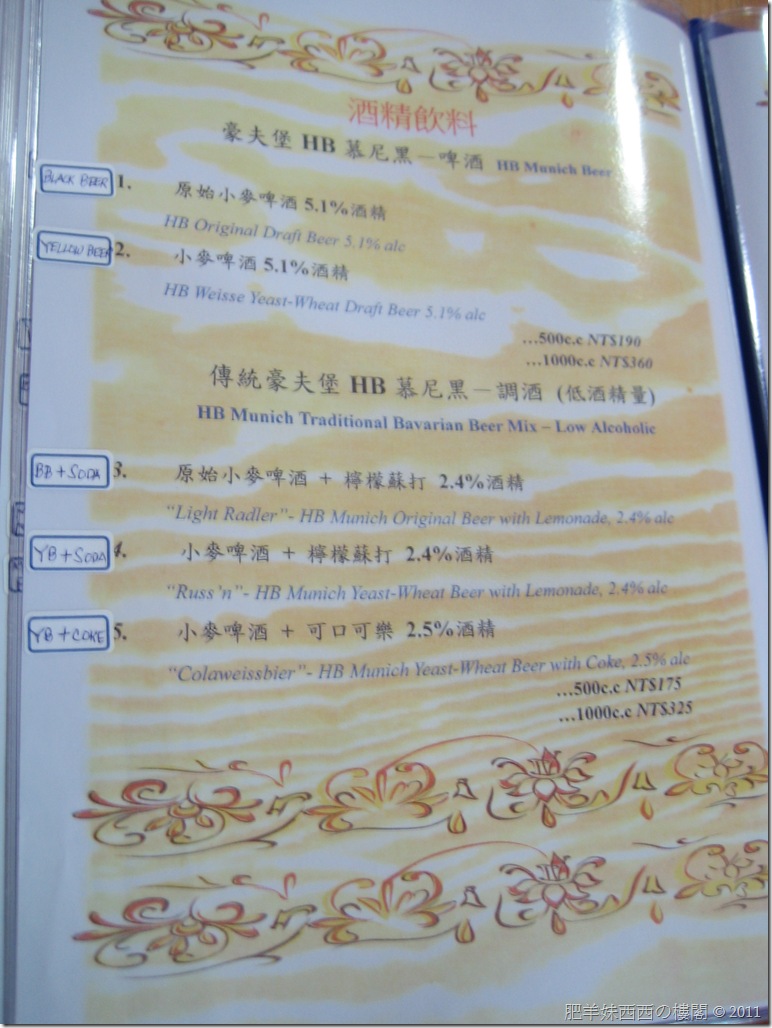 酒精飲料
豪夫堡 HB 慕尼黑－啤酒 HB Munich Beer
BLACK BEER 1. 原始小麥啤酒 5.1%酒精
HB Original Draft Beer 5.1% alc
YELLOW BEER 2. 小麥啤酒 5.1%酒精
HB Weisse Yeast-Wheat Draft Beer 5.1% alc
…500c.c NT$190
…1000c.c NT$360
傳統豪夫堡 HB 慕尼黑－調酒 (低酒精量)
HB Munich Traditional Bavarian Beer Mix – Low Alcoholic
BB + SODA 3. 原始小麥啤酒 + 檸檬蘇打 2.4%酒精
“Light Radler”- HB Munich Original Beer with Lemonade, 2.4% alc
YB + SODA 4. 小麥啤酒 + 檸檬蘇打 2.4%酒精
“Russ’n”- HB Munich Yeast-Wheat Beer with Lemonade, 2.4% alc
YB + COKE 5. 小麥啤酒 + 可口可樂 2.5%酒精
“Colaweissbier”- HB Munich Yeast-Wheat Beer with Coke, 2.5% alc
…500c.c NT$175
…1000c.c NT$325
肥羊妹西西の樓閣 © 2011